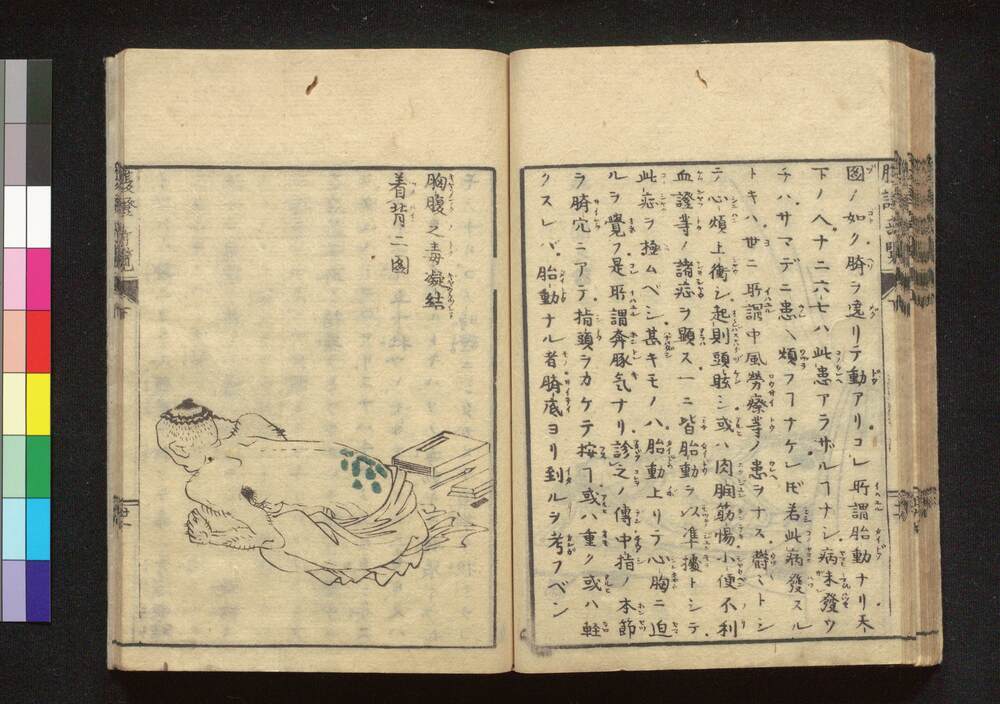 圖ノ如ク臍ヲ遶リテ動アリコレ所謂胎動ナリ天
下ノヘ十二六七ハ此患アラザルヿナシ病未發ウ
チハサマデニ患ヘ煩フヿナケレ𪜈若此病發スル
トキハ世ニ所謂中風勞瘵等ノ患ヲナス欝ミトシ
テ心煩上衝シ起則頭眩シ或ハ肉胸筋惕小便不利
血證等ノ諸症ヲ顯ス一ニ皆胎動ラシ準據トシテ
此症ヲ極ムベシ甚キモノハ胎動上リテ心胸ニ迫
ルヲ覺フ是所謂奔豚気ナリ診之ノ傳中指ノ本節
ヲ臍穴ニアテ指頭ヲカケテ按ヿ或ハ重ク或ハ軽
クスレバ胎動ナル者臍底ヨリ到ルヲ考フベシ
胸腹之毒凝結
着背二圖